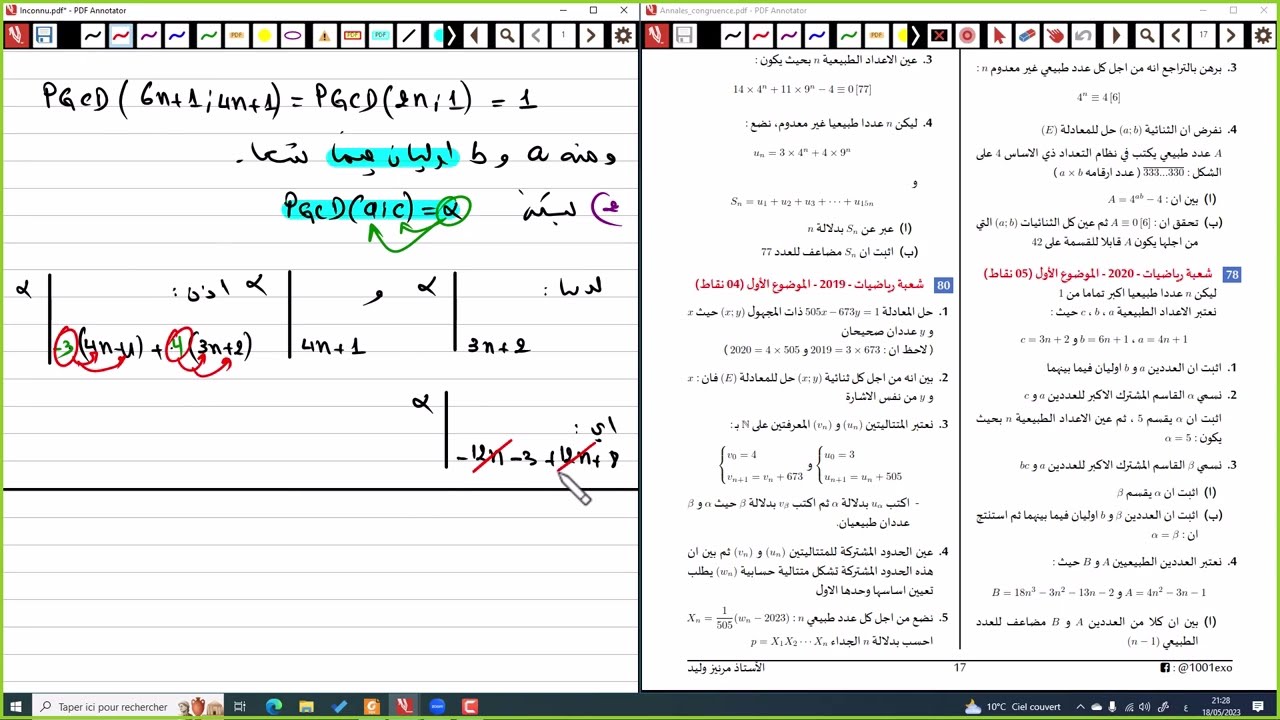 Inconnu.pdf* - PDF Annotator
PGCD(6n+1 ; 4n+1) = PGCD(2n ; 1) = 1
ومنه a و b اوليان فيما بينهما.
2) نسمي PGCD(a ; c) = α
لدينا : α | 3n+2 و α | 4n+1 اذن : α | -3(4n+1) + 4(3n+2)
اي : α | -12n-3+12n+8
Annales_congruence.pdf - PDF Annotator
1
17
3. برهن بالتراجع انه من اجل كل عدد طبيعي غير معدوم n :
4ⁿ ≡ 4 [6]
4. نفرض ان الثنائية (a; b) حل للمعادلة (E)
A عدد طبيعي يكتب في نظام التعداد ذي الاساس 4 على
الشكل : 333...330 ( عدد ارقامه a × b )
(ا) بين ان : A = 4ᵃᵇ − 4
(ب) تحقق ان : A ≡ 0 [6] ثم عين كل الثنائيات (a; b) التي
من اجلها يكون A قابلا للقسمة على 42
78 شعبة رياضيات - 2020 - الموضوع الأول (05 نقاط)
ليكن n عددا طبيعيا اكبر تماما من 1
نعتبر الاعداد الطبيعية a ، b ، c حيث :
a = 4n + 1 ، b = 6n + 1 و c = 3n + 2
1. اثبت ان العددين a و b اوليان فيما بينهما
2. نسمي α القاسم المشترك الاكبر للعددين a و c
اثبت ان α يقسم 5 ، ثم عين الاعداد الطبيعية n بحيث
يكون : α = 5
3. نسمي β القاسم المشترك الاكبر للعددين a و bc
(ا) اثبت ان α يقسم β
(ب) اثبت ان العددين β و b اوليان فيما بينهما ثم استنتج
ان : α = β
4. نعتبر العددين الطبيعيين A و B حيث :
A = 4n² − 3n − 1 و B = 18n³ − 3n² − 13n − 2
(ا) بين ان كلا من العددين A و B مضاعف للعدد
الطبيعي (n − 1)
3. عين الاعداد الطبيعية n بحيث يكون :
14 × 4ⁿ + 11 × 9ⁿ − 4 ≡ 0 [77]
4. ليكن n عددا طبيعيا غير معدوم، نضع :
uₙ = 3 × 4ⁿ + 4 × 9ⁿ
و
Sₙ = u₁ + u₂ + u₃ + ··· + u₁₅ₙ
(ا) عبر عن Sₙ بدلالة n
(ب) اثبت ان Sₙ مضاعف للعدد 77
80 شعبة رياضيات - 2019 - الموضوع الأول (04 نقاط)
1. حل المعادلة 505x − 673y = 1 ذات المجهول (x; y) حيث x
و y عددان صحيحان
( لاحظ ان : 2019 = 3 × 673 و 2020 = 4 × 505 )
2. بين انه من اجل كل ثنائية (x; y) حل للمعادلة (E) فان : x
و y من نفس الاشارة
3. نعتبر المتتاليتين (uₙ) و (vₙ) المعرفتين على ℕ بـ :
{u₀ = 3 و {v₀ = 4
uₙ₊₁ = uₙ + 505 vₙ₊₁ = vₙ + 673
- اكتب uα بدلالة α ثم اكتب vβ بدلالة β حيث α و β
عددان طبيعيان.
4. عين الحدود المشتركة للمتتاليتين (uₙ) و (vₙ) ثم بين ان
هذه الحدود المشتركة تشكل متتالية حسابية (wₙ) يطلب
تعيين اساسها وحدها الاول
5. نضع من اجل كل عدد طبيعي n : Xₙ = 1/505 (wₙ − 2023)
احسب بدلالة n الجداء p = X₁X₂ ··· Xₙ
@1001exo :
17
الأستاذ مرنيز وليد
Taper ici pour rechercher
10°C Ciel couvert
ع
21:28
18/05/2023